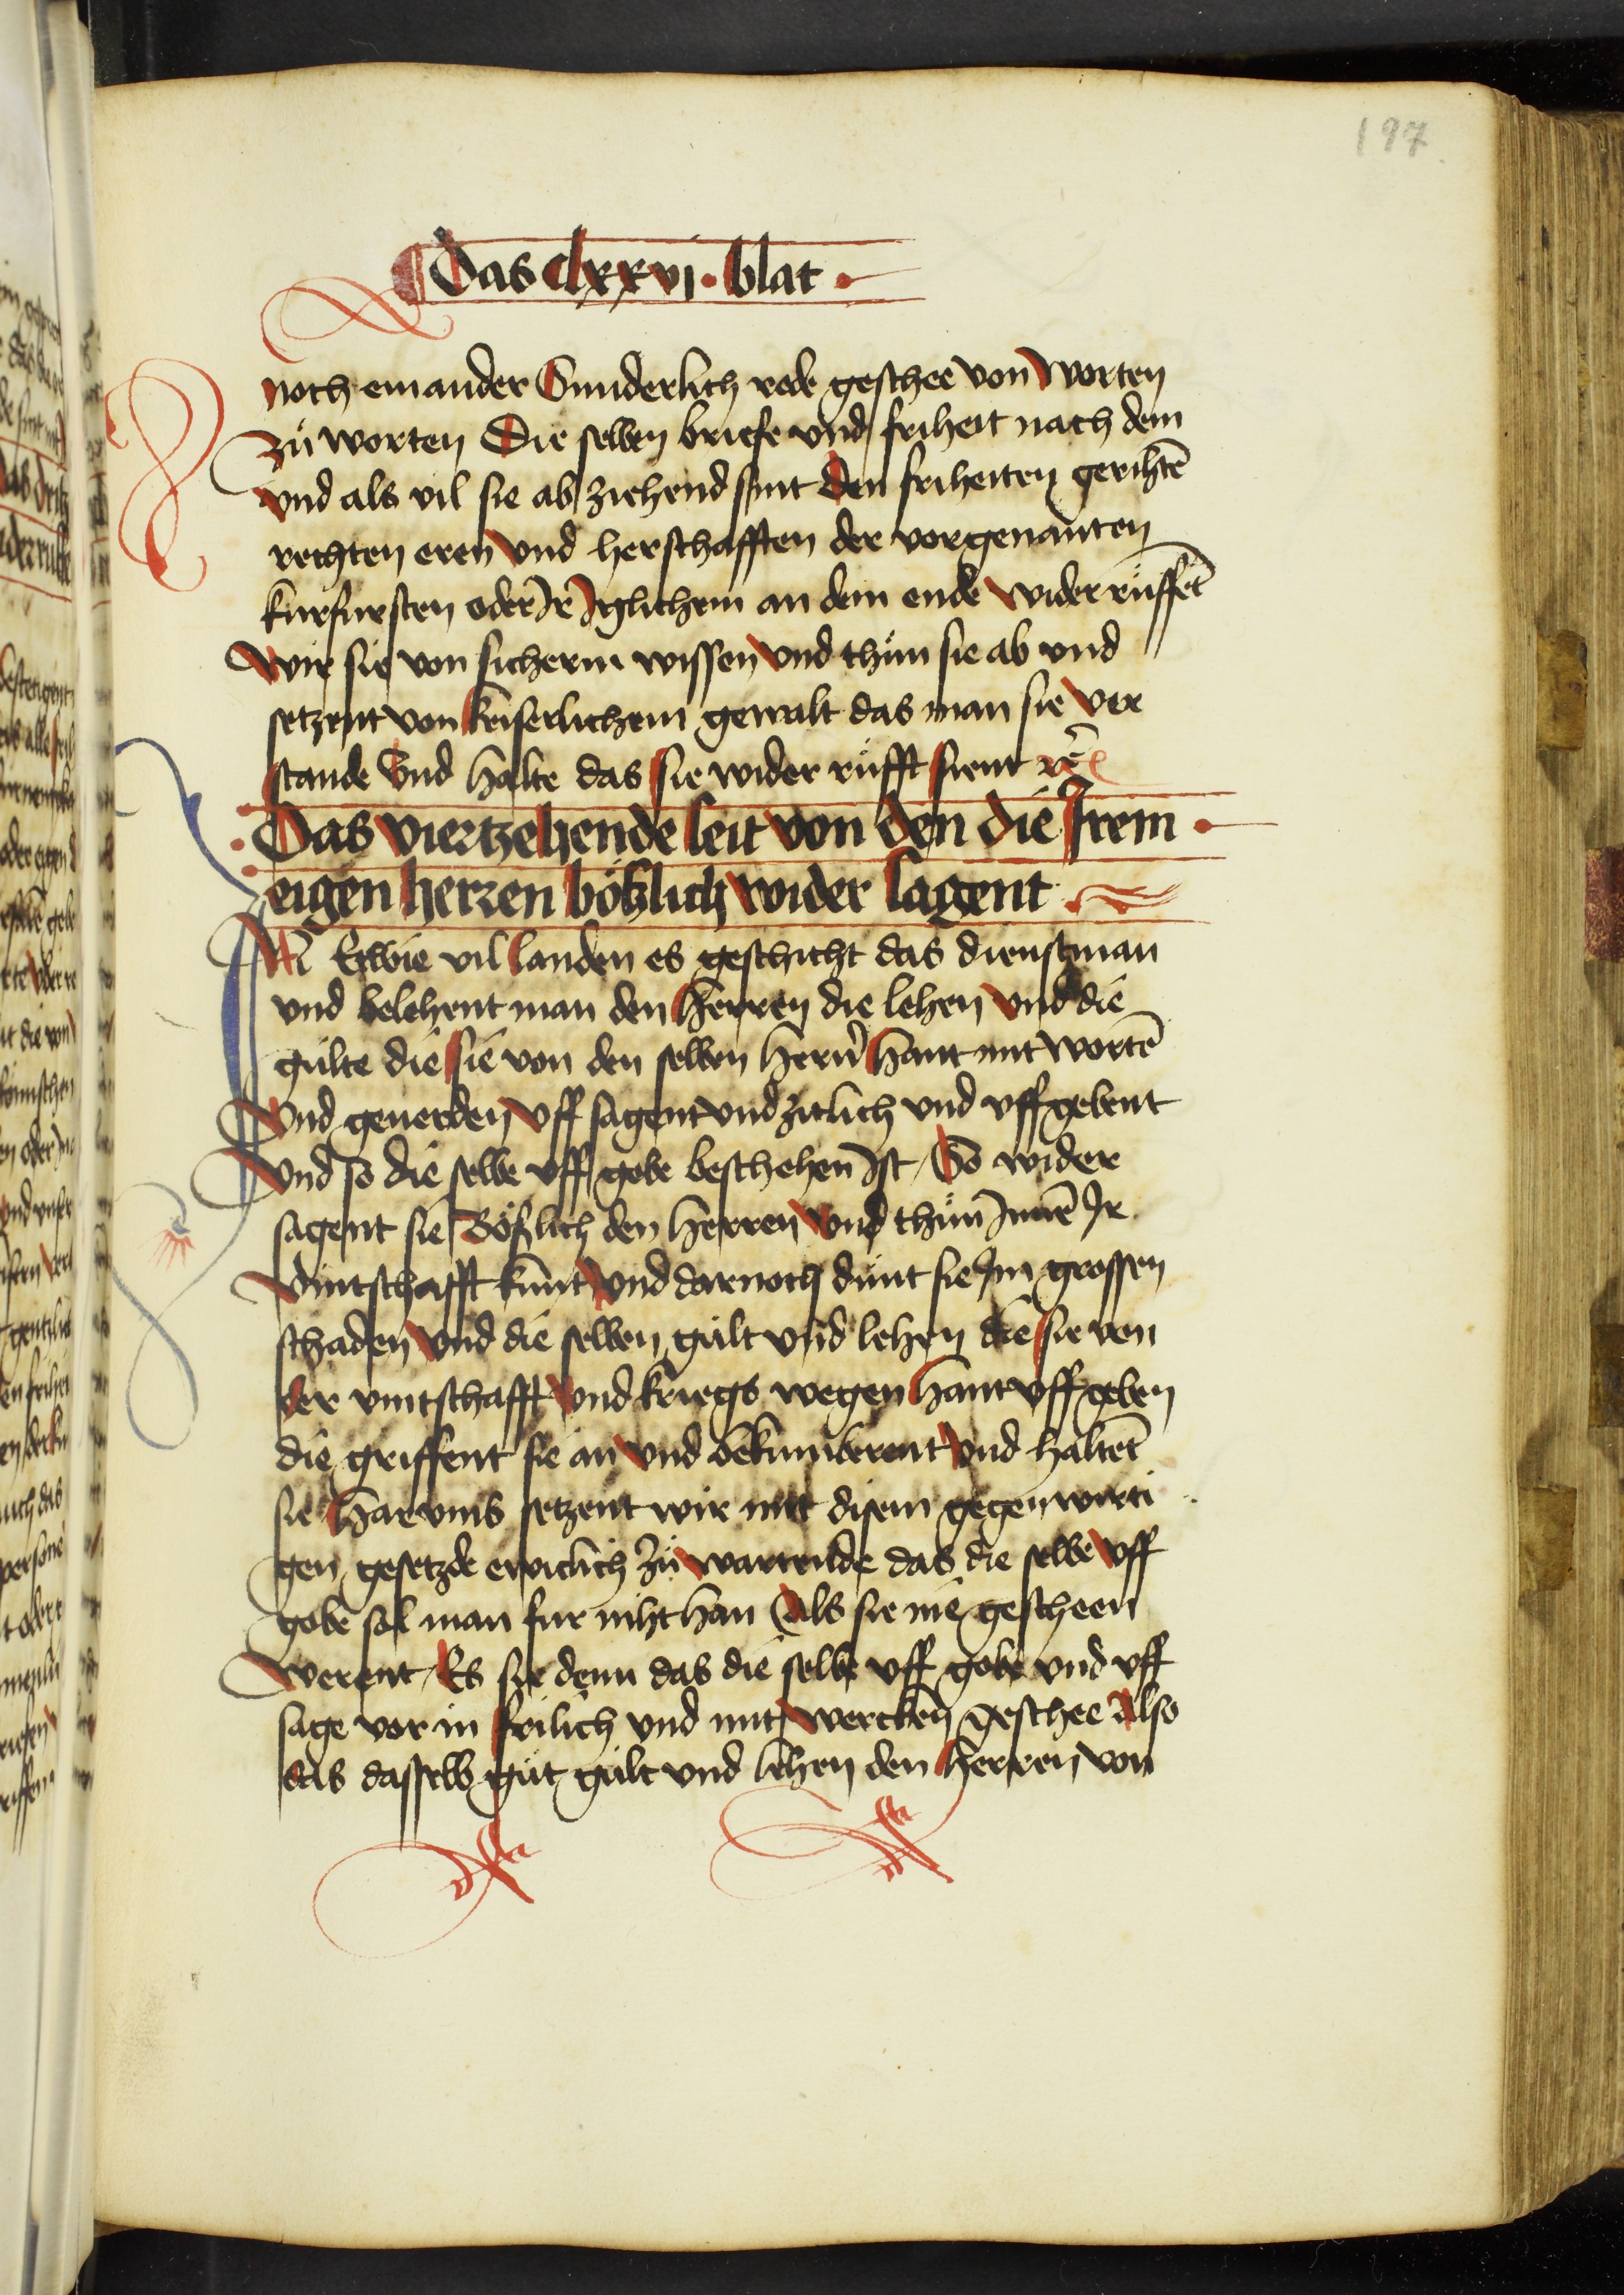 197
Das clxxvi · blat ·
noch einander Sunderlich rede geschee von worten
zů worten Die selben briefe vnd friheit nach dem
vnd als vil sie ab ziehend sint den friheiten gerihtē
rechten eren vnd herschafften der vorgenanten
kurfursten oder Ir Iglichem an dem ende wider růffēt
wir sie von sicherm wissen vnd thůn sie ab vnd
setzent von keiserlichem gewalt das man sie ver
stande Vnd halte das sie wider růfft sient ꝛc̄
Das viertzehende leit von den die Irem
eigen herzen bößlich wider sagent
IN Etwie vil landen es geschicht das dienstman
vnd belehent man den Herren die lehen vnd die
gülte die sie von den selben Hern̄ Hant mit wortē
Vnd geuerden vff sagent vndzitlich vnd vff gebent
Vnd so die selbe vff gobe beschehen Ist So wider
sagent sie Bößlich den Herren Vnd thůn Innē Ir
vintschafft kunt Vnd darnoch důnt sie Im grossen
schaden Vnd die selben gült vnd lehen die sie von
der vintschafft Vnd kriegs wegen Hant vff geben
die griffent sie an Vnd bekumberent Vnd haltēt
sie Har vmb setzent wir mit disem gegenwirti
gen gesetzde ewiclich zů warende das die selbe vff
gobe sol man fur niht han Als sie nie gescheen
werent Es sie denn das die selbe vff gobe vnd vff
sage vor in frilich vnd mit wercken geschee Also
das dasselb gůt gült vnd lehen den Herren von